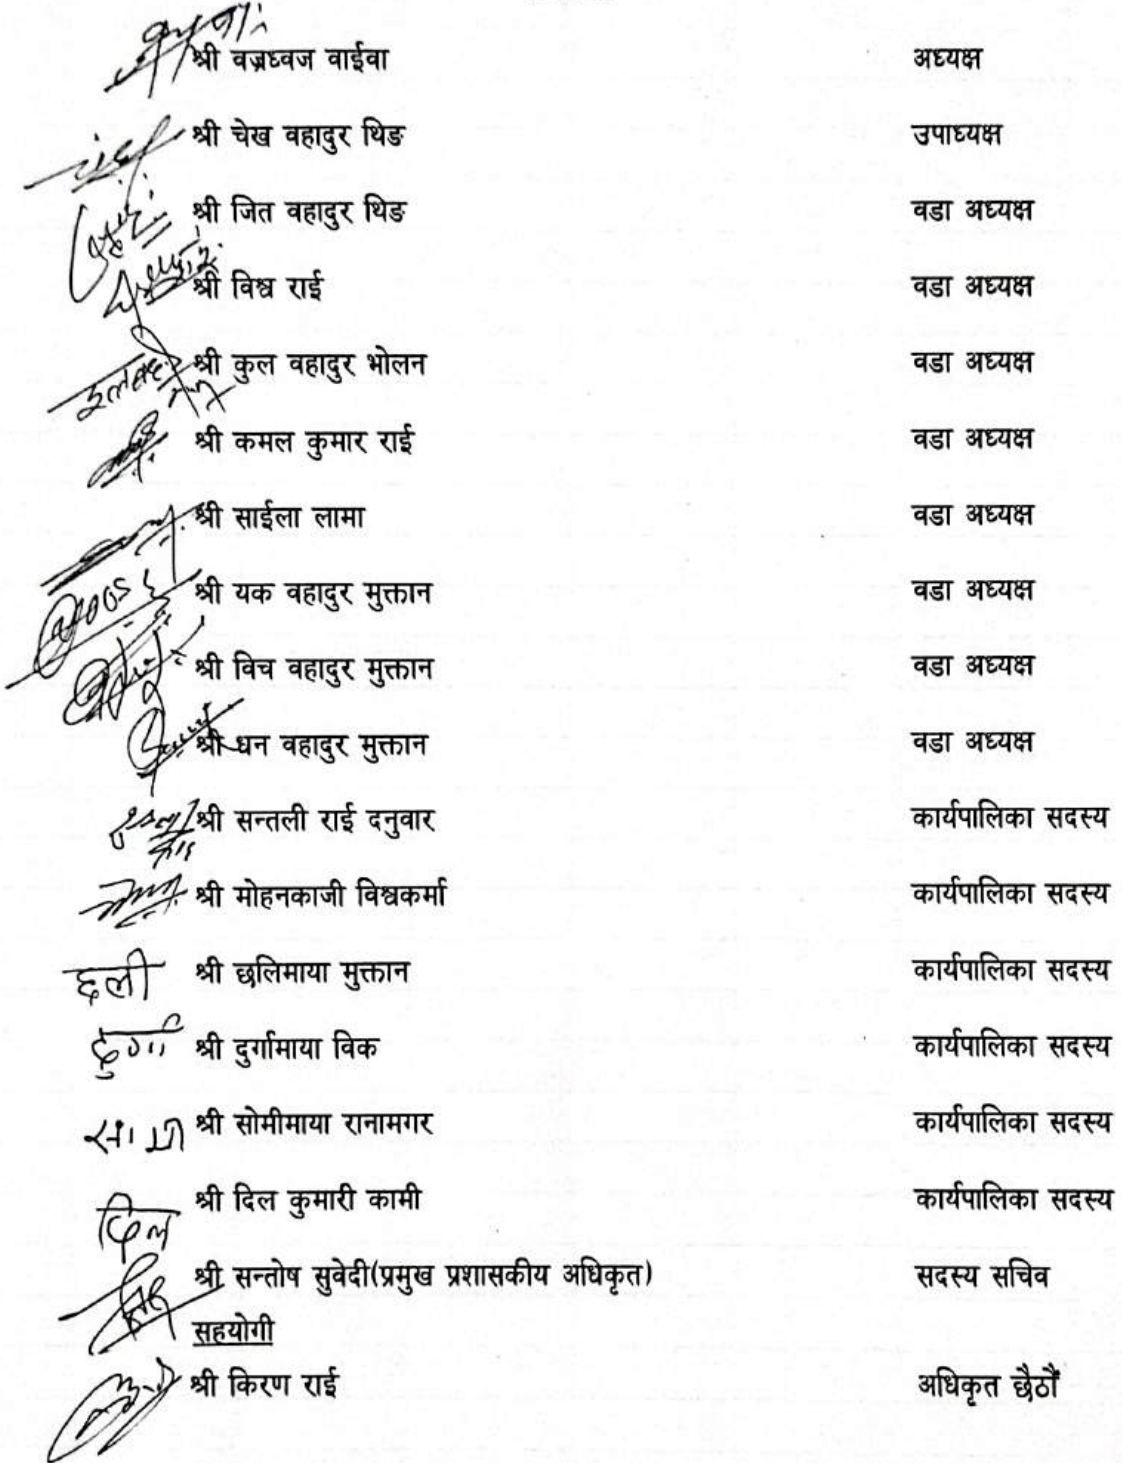 श्री वज्रध्वज वाईवा अध्यक्ष
श्री चेख वहादुर थिङ उपाध्यक्ष
श्री जित वहादुर थिङ वडा अध्यक्ष
श्री विश्व राई वडा अध्यक्ष
श्री कुल वहादुर भोलन वडा अध्यक्ष
श्री कमल कुमार राई वडा अध्यक्ष
श्री साईला लामा वडा अध्यक्ष
श्री यक वहादुर मुक्तान वडा अध्यक्ष
श्री विच वहादुर मुक्तान वडा अध्यक्ष
श्री धन वहादुर मुक्तान वडा अध्यक्ष
श्री सन्तली राई दनुवार कार्यपालिका सदस्य
श्री मोहनकाजी विश्वकर्मा कार्यपालिका सदस्य
छली श्री छलिमाया मुक्तान कार्यपालिका सदस्य
दुर्गा श्री दुर्गामाया विक कार्यपालिका सदस्य
श्री सोमीमाया रानामगर कार्यपालिका सदस्य
दिल श्री दिल कुमारी कामी कार्यपालिका सदस्य
श्री सन्तोष सुवेदी(प्रमुख प्रशासकीय अधिकृत) सदस्य सचिव
सहयोगी
श्री किरण राई अधिकृत छैठौं